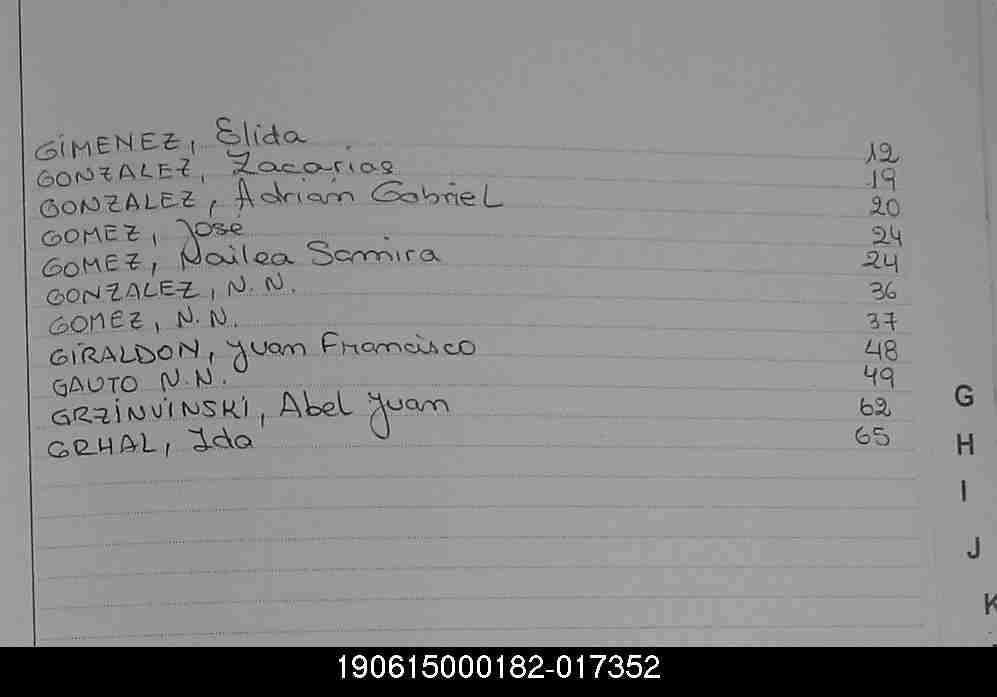 GIMENEZ, Elida 12
GONZALEZ, Zacarias 19
GONZALEZ, Adrian Gabriel 20
GOMEZ, José 24
GOMEZ, Nailea Samira 24
GONZALEZ, N.N. 36
GOMEZ, N.N. 37
GIRALDON, Juan Francisco 48
GAUTO N.N. 49
GRZINVINSKI, Abel Juan 62
GRHAL, Ida 65
G
H
I
J
K
190615000182-017352